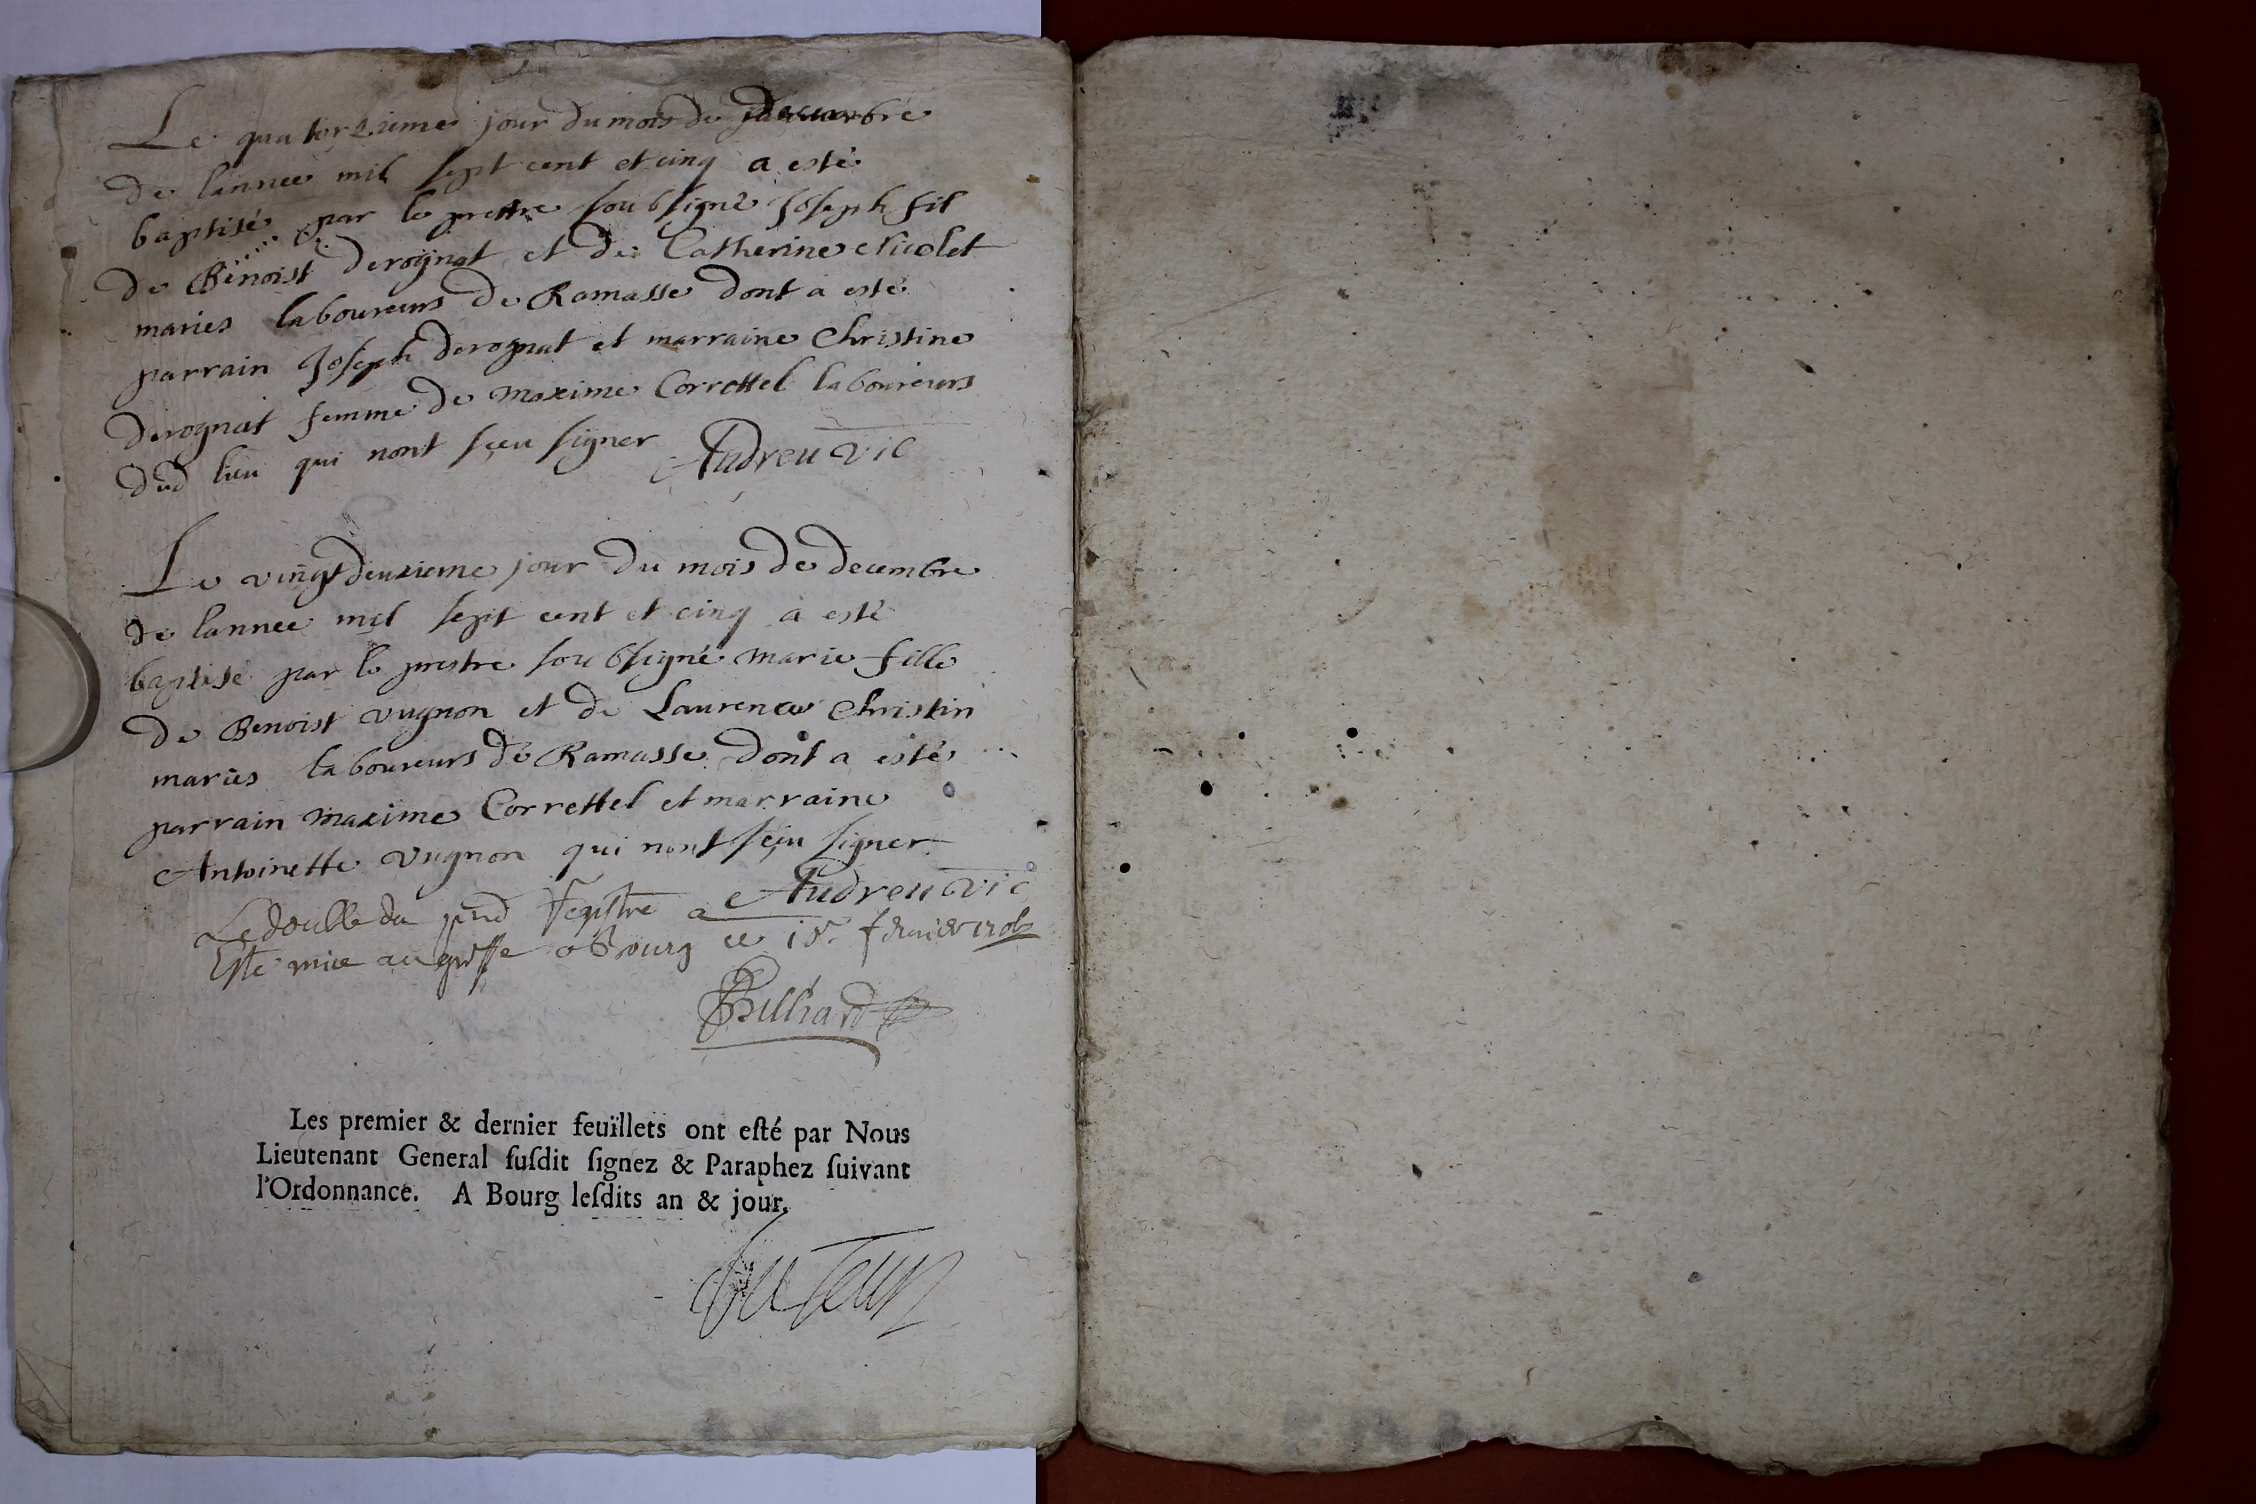 Le quatorzieme jour du mois de decembre
de lannee mil sept cent et cinq a esté
baptisé par le prettre soubsigné Joseph fil
de Benoist derognat et de Catherine Nicolet
maries laboureurs de Ramasse dont a esté
parrain Joseph derognat et marraine Christine
derognat femme de maxime Correttel laboureurs
dud lieu qui nont sceu signer Audreu vic
Le vingt deuxieme jour du mois de decembre
de lannee mil sept cent et cinq a esté
baptisé par le prestre soubsigné marie fille
de Benoist vugnon et de Laurence Christin
mariés laboureurs de Ramasse dont a esté
parrain maxime Correttel et marraine
Antoinette vugnon qui nont sceu signer
Audreu vic
Le double du pnt Registre a
Esté mise au greffe a Bourg ce 15. fevrier
Billiard
Les premier & dernier feuïllets ont eſté par Nous
Lieutenant General ſuſdit ſignez & Paraphez ſuivant
l'Ordonnance. A Bourg leſdits an & jour.